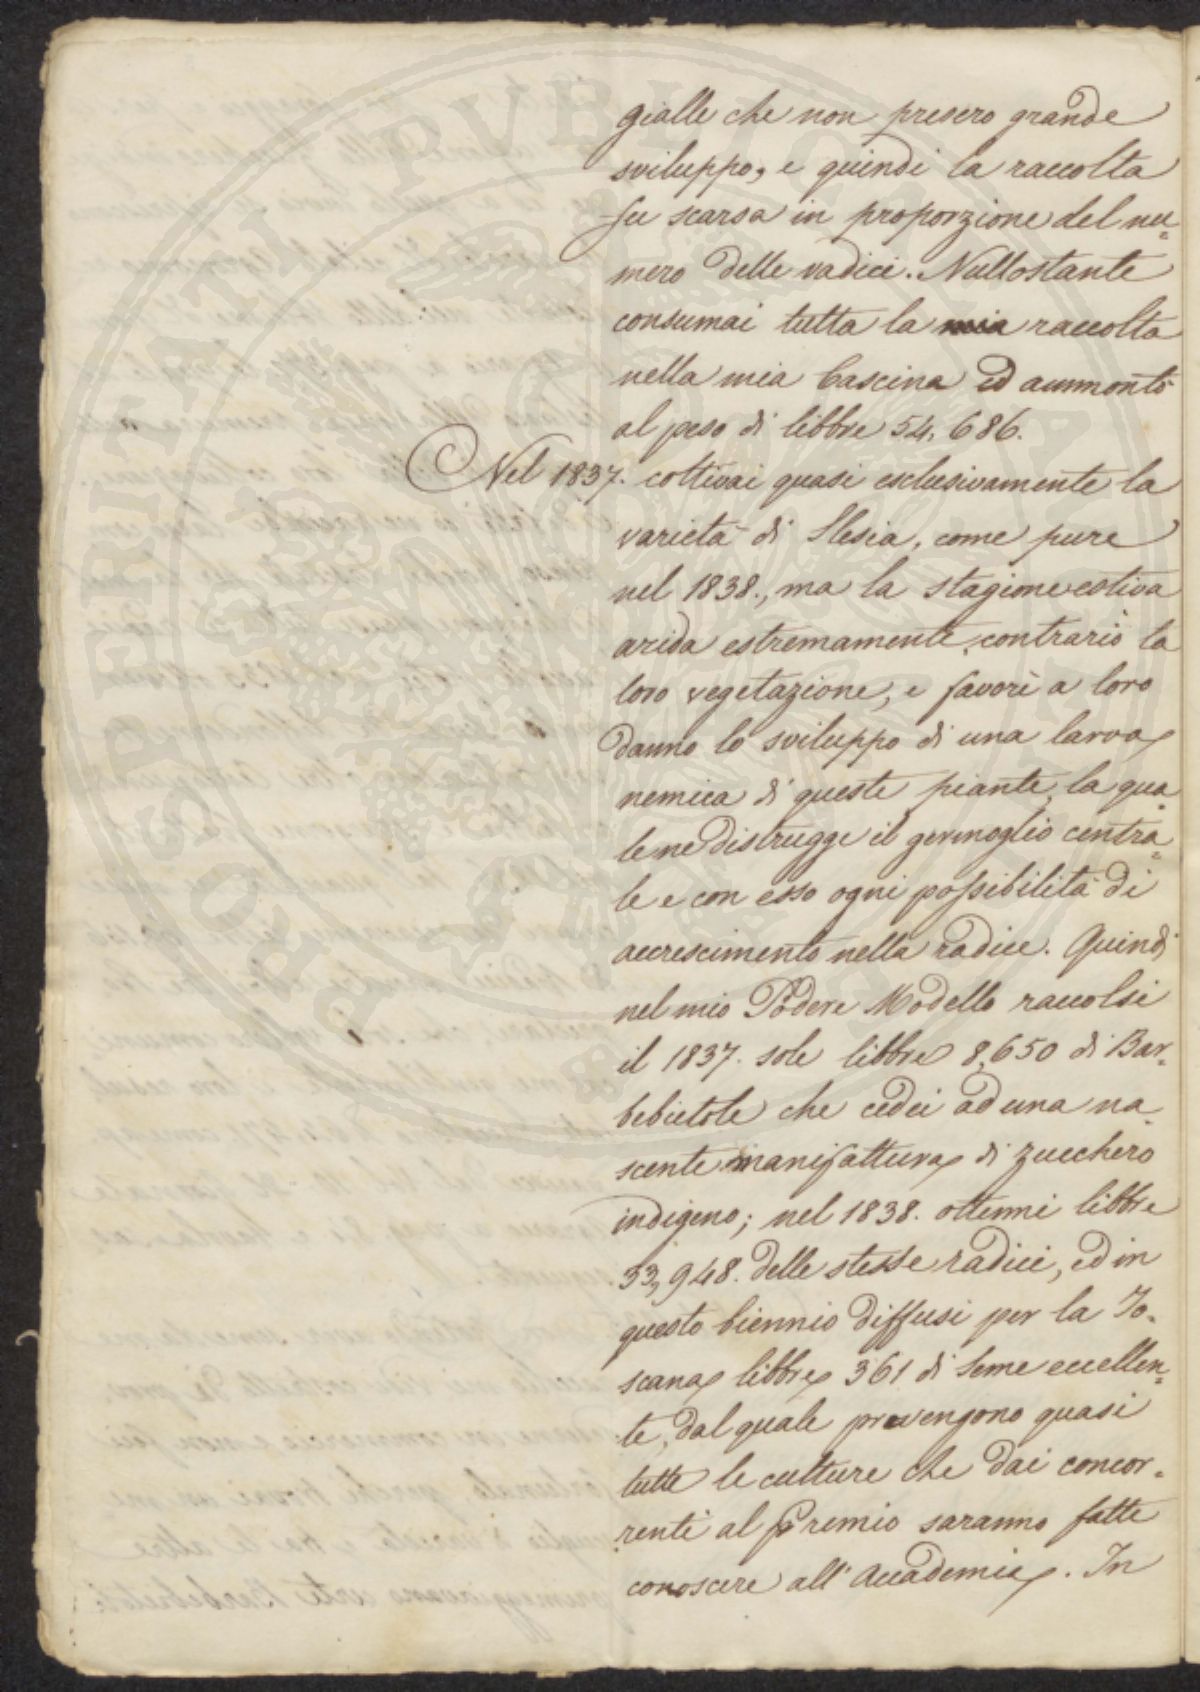 gialle che non presero grande
sviluppo, e quindi la raccolta
fu scarsa in proporzione del nu=
mero delle radici. Nullostante
consumai tutta la mia raccolta
nella mia Cascina ed ammontò
al peso di libbre 54,686.
Nel 1837. coltivai quasi esclusivamente la
varietà di Slesia, come pure
nel 1838., ma la stagione estiva
arida estremamente, contrariò la
loro vegetazione, e favorì a loro
danno lo sviluppo di una larva
nemica di queste piante, la qua=
le ne distrugge il germoglio centra=
le e con esso ogni possibilità di
accrescimento nella radice. Quindi
nel mio Podere Modello raccolsi
il 1837. sole libbre 8,650 di Bar=
bebietole che cedei ad una na
scente manifattura di zucchero
indigeno; nel 1838. ottenni libbre
33,948. delle stesse radici, ed in
questo biennio diffusi per la To=
scana libbre 361 di seme eccellen=
te, dal quale provengono quasi
tutte le culture che dai concor=
renti al Premio saranno fatte
conoscere all'Accademia. In
PROSPERITATI PVBLICAE